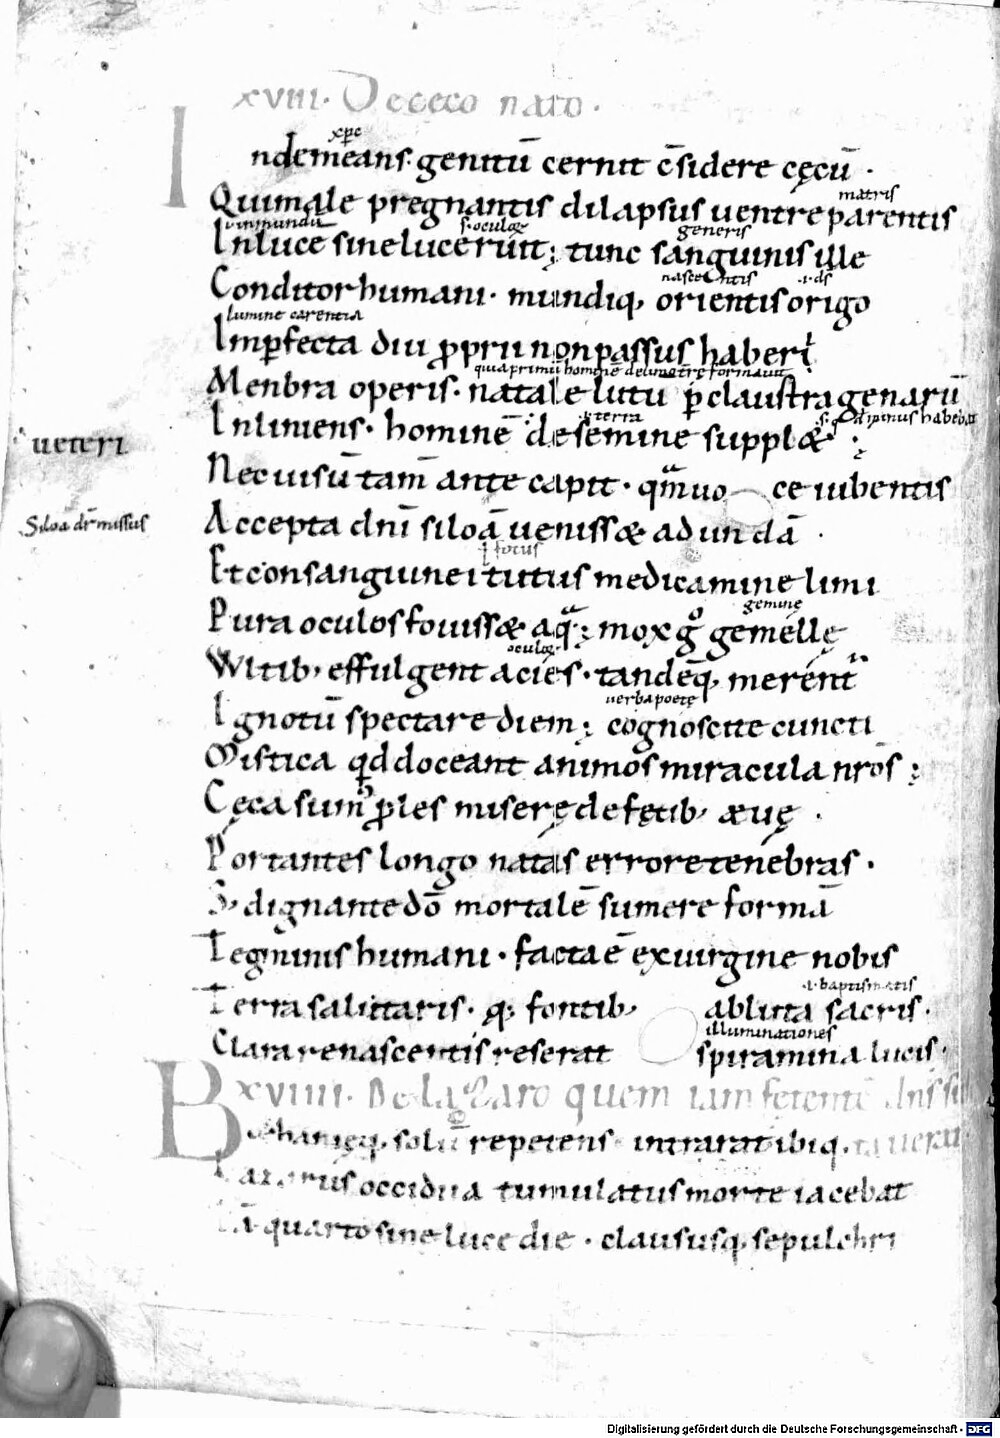 xviii. De ceco nato.
xpc
Indemeans. genitū cernit c̄sidere cęcū .
matris
Qui male pregnantis dilapsus uentre parentis
in mundū s. oculoꝝ generis
In luce sine luce ruit; tunc sanguinis ille
nascentis .i. ds
Conditor humani. mundiq; orientis origo
lumine carentia
Imꝑfecta diu ꝓprii non passus haberi
quia primū hominē de limo trę formauit
Menbra operis. natale lutū ꝑ claustra genarū
terra habebat
Inliniens. hominē de semine supplet ;
ueteri
Nec uisū tam̄ ante capit. qm̄ uoce iubentis
Siloa dr̄ missus
Accepta dn̄i siloā uenisset ad undā .
.i. fotus
Et consanguinei tutus medicamine limi
geminę
Pura oculos fouisset aqua; mox gͦ gemellę
oculoꝝ
Vultib; effulgent acies. tandēq; merent᷑
uerba poetę
Ignotū spectare diem; cognoscite cuncti
Mistica quid doceant animos miracula nr̄os ;
Cęca sum᷒ ꝓles miserę de fętib; æuę .
Portantes longo natas errore tenebras .
S; dignante dō mortalē sumere formā
Tegminis humani. facta ē ex uirgine nobis
.i. baptismatis
Terra salutaris. q; fontib; abluta sacris.
illuminationes
Clara renascentis reserat spiramina lucis.
xviiii. De lazaro quem iam fetentē
Bethanięq; solū repetens intrarat ibiq;
Lazarus occidua tumulatus morte iacebat
Iā quarto sine luce die . claususq; sepulchri
Digitalisierung gefördert durch die Deutsche Forschungsgemeinschaft - DFG